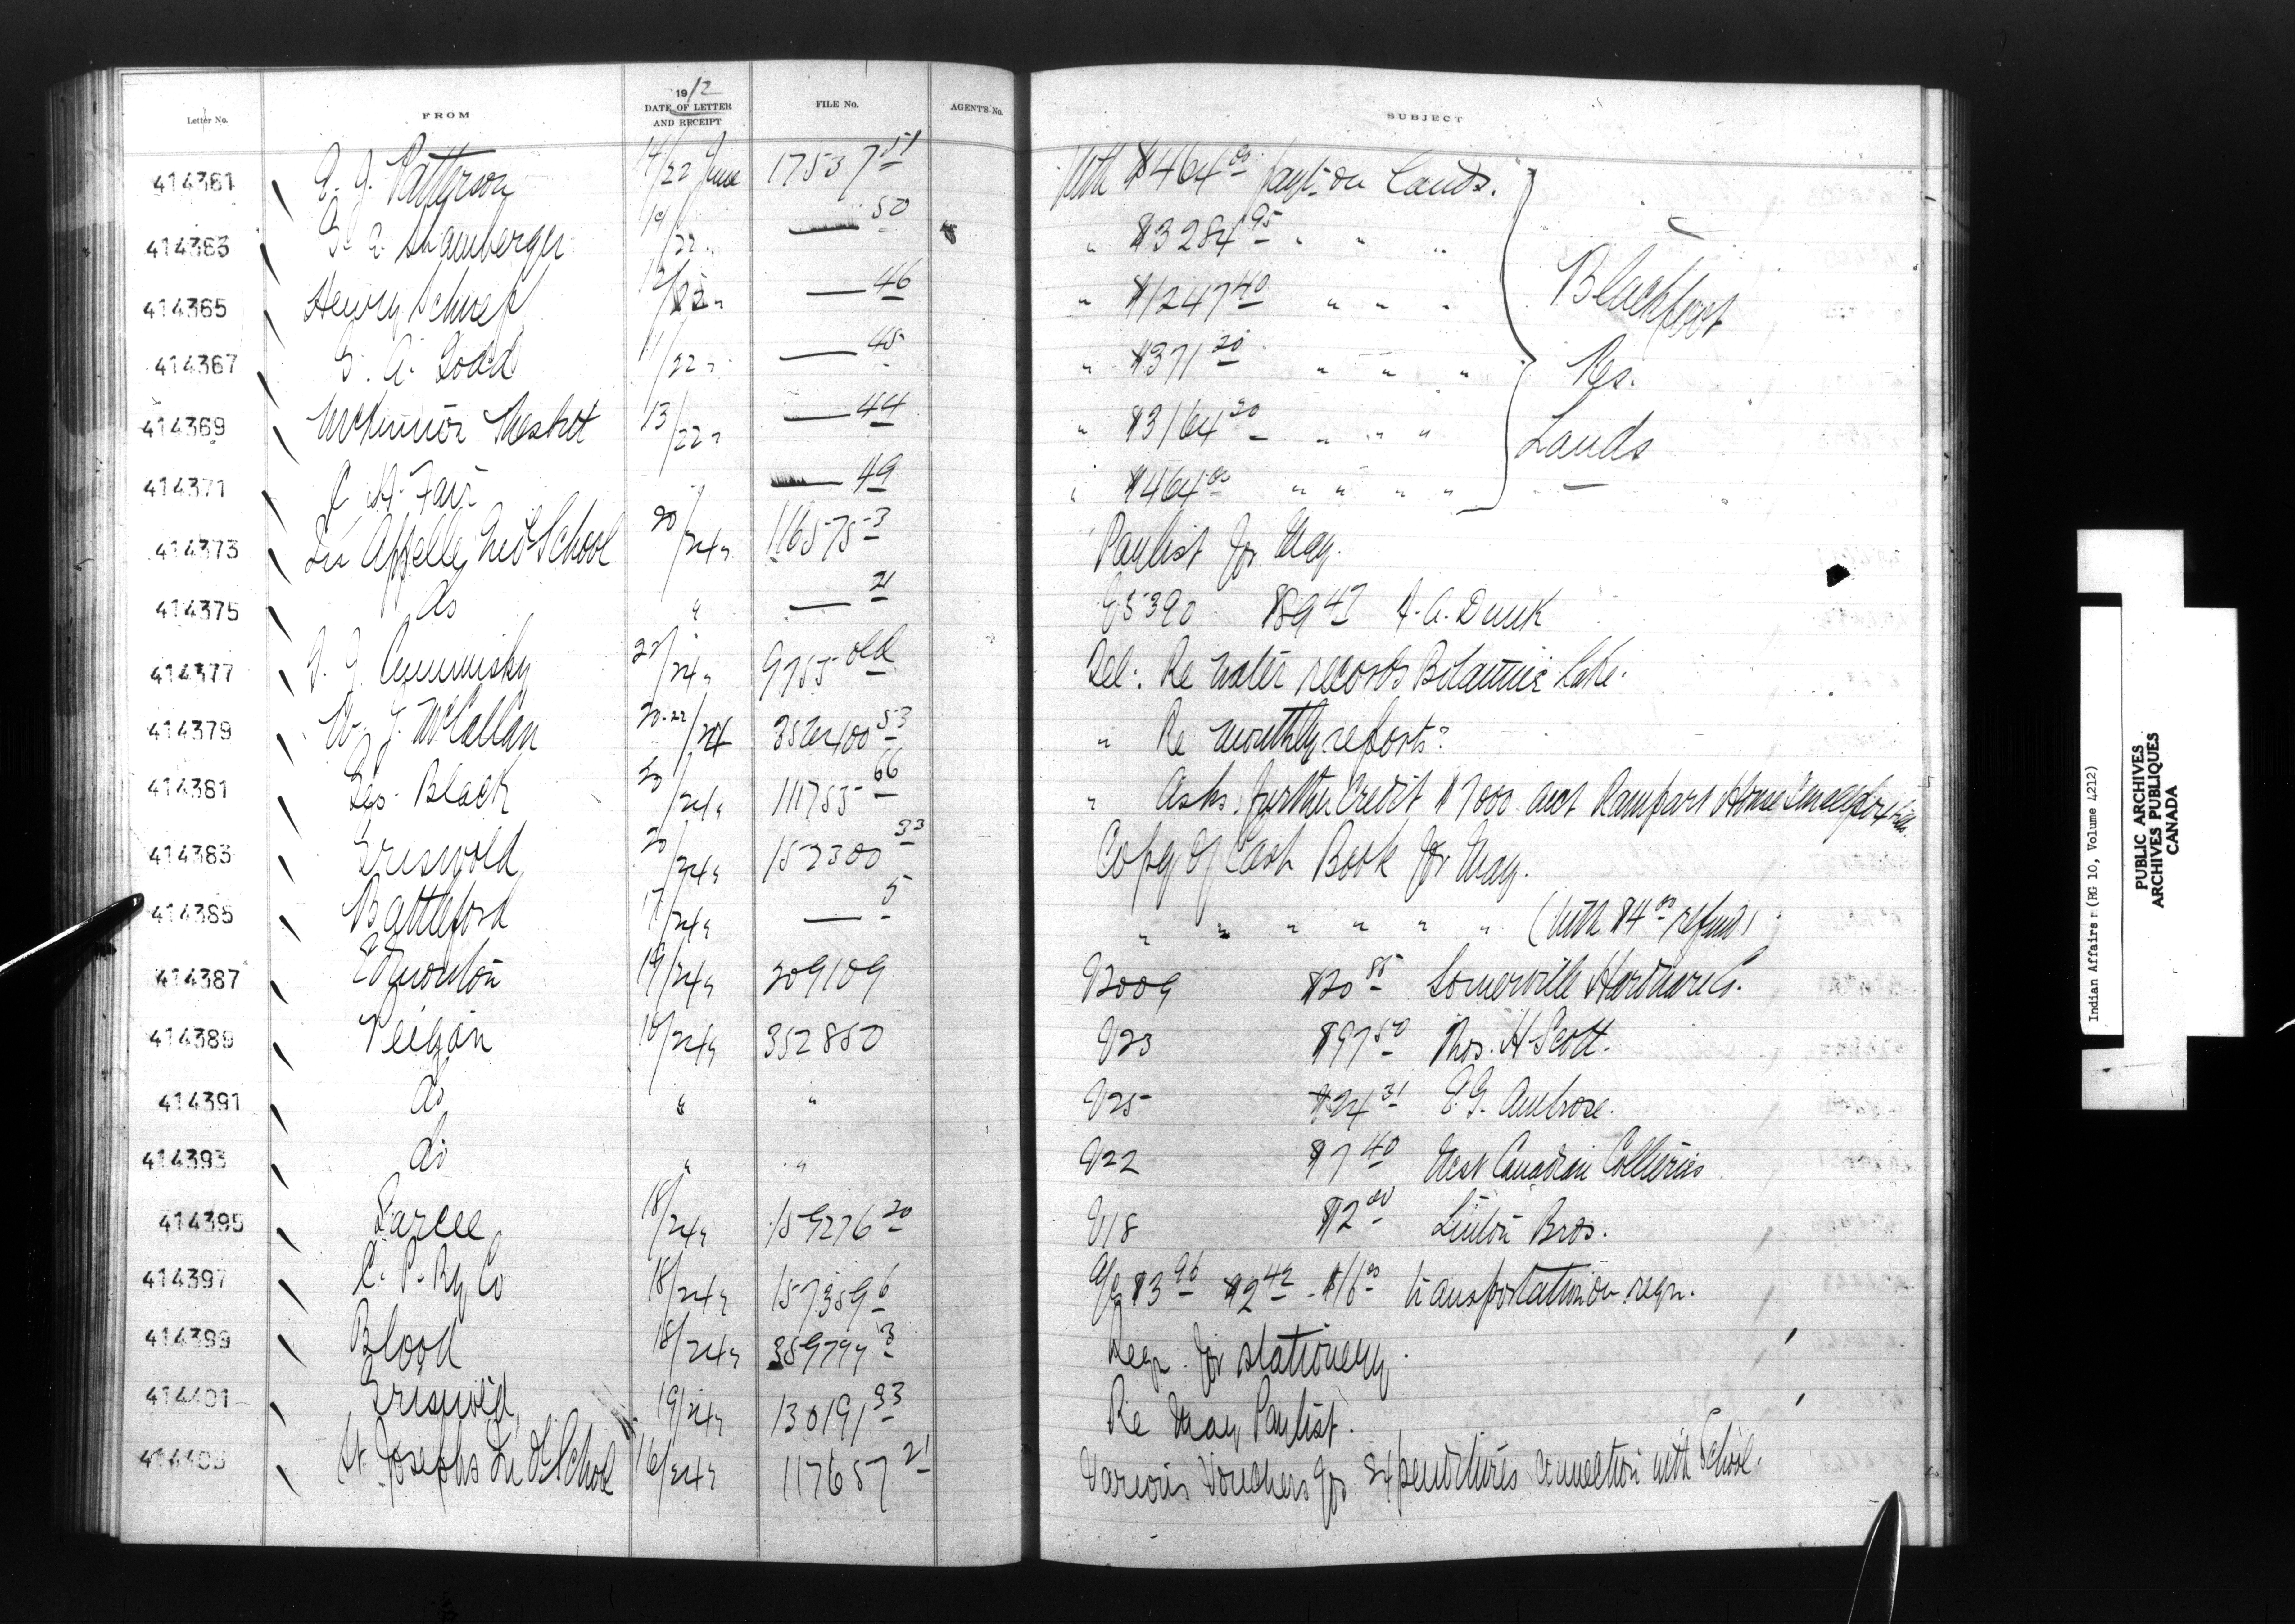 Letter No. FROM 1912 DATE OF LETTER AND RECEIPT FILE No. AGENT'S No. SUBJECT
414361 Patterson 14/22 June 17537 51 With $464 00 payt on Lands.
414363 Shamberger 22 " 50 " $3284 95 " " "
414365 Henry Schief 12/22 " 46 " $1247 40 " " " Blackfoot
414367 G. A. Todd 11/22 " 45 " $371 20 " " " Res.
414369 McKinnor Nesbit 13/22 " 44 " $3164 20 " " " Lands
414371 Fair 49 " $464 00 " " " "
414373 Qu Appelle Ind School 20/24 " 116575-3 Paylist for May.
414375 do " 21 $89 47 A. A. Dunk
414377 Cummisky 22/24 " 9755 old Tel: Re water records Botanie Lake.
414379 W. J. McCallan 20-22/24 53 " Re monthly reports?
414381 Geo. Black 24 " 111755-66 " Asks further credit $7000 acct Rampart House
414383 Griswold 20/24 " 152300 33 Copy of Cash Book for May.
414385 Battleford 17/24 " 5 " " " " " " (with $4 00 refund)
414387 Edmonton 19/24 " 309109 V2009 $20 85 Somerville Hardware Co.
414389 Peigan 18/24 " 352850 V23 $97 50 Thos. H Scott.
414391 do " " V25 $24 31 E. G. Ambrose.
414393 do " " V22 $7 40 West Canadian Collieries
414395 Sarcee 18/24 " 159276 20 V18 $2 00 Linton Bros.
414397 C. P. Ry Co 18/24 " 157359 6 a/c $3 96 $2 42 - $16 00 transportation on reqn.
414399 Blood 18/24 " 359794 3 Reqn. for stationery.
414401 Griswold 19/24 " 130191 33 Re May Paylist.
414403 St. Josephs Ind School 16/24 " 117657 21 Various Vouchers for expenditures connection with School.
Indian Affairs (RG 10, Volume 4212)
PUBLIC ARCHIVES
ARCHIVES PUBLIQUES
CANADA